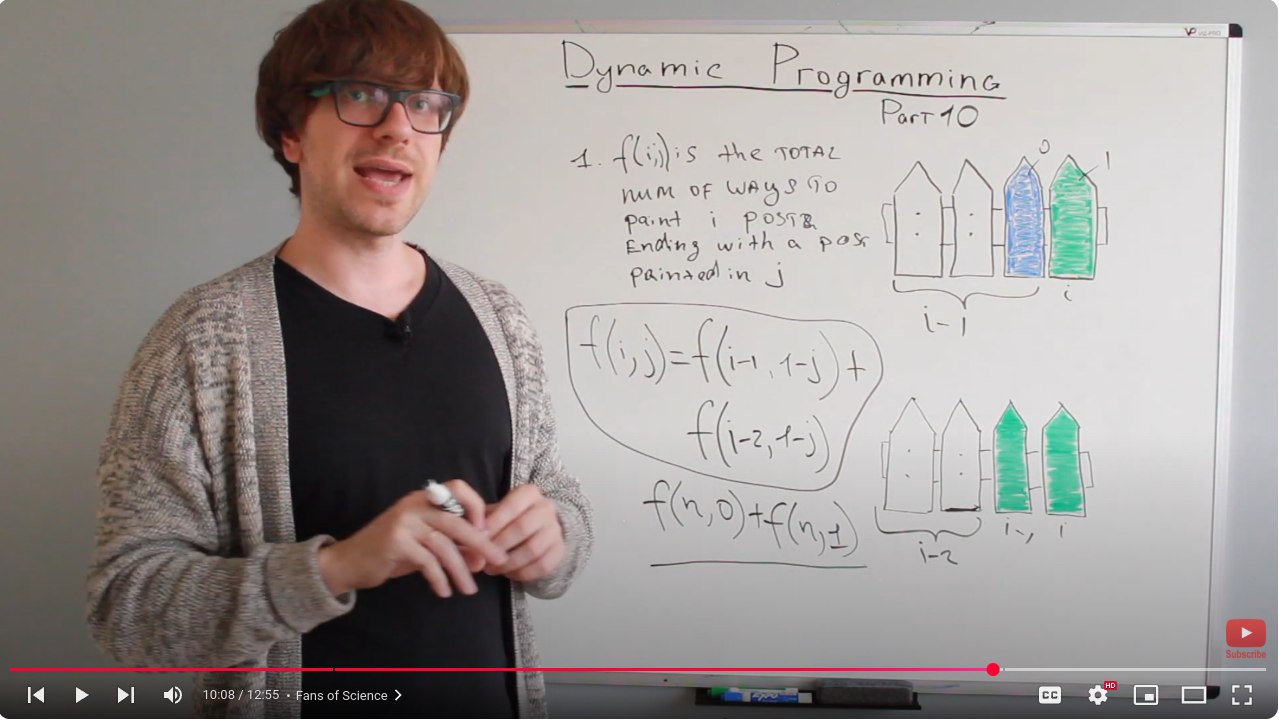 Dynamic Programming
Part 10
1. f(i,j) is the TOTAL
NUM OF WAYS TO
paint i POSTS
Ending with a post
painted in j
0
1
i-1
i
f(i,j)=f(i-1,1-j)+
f(i-2,1-j)
f(n,0)+f(n,1)
i-2
i-1
i
Subscribe
10:08 / 12:55 • Fans of Science
CC
HD